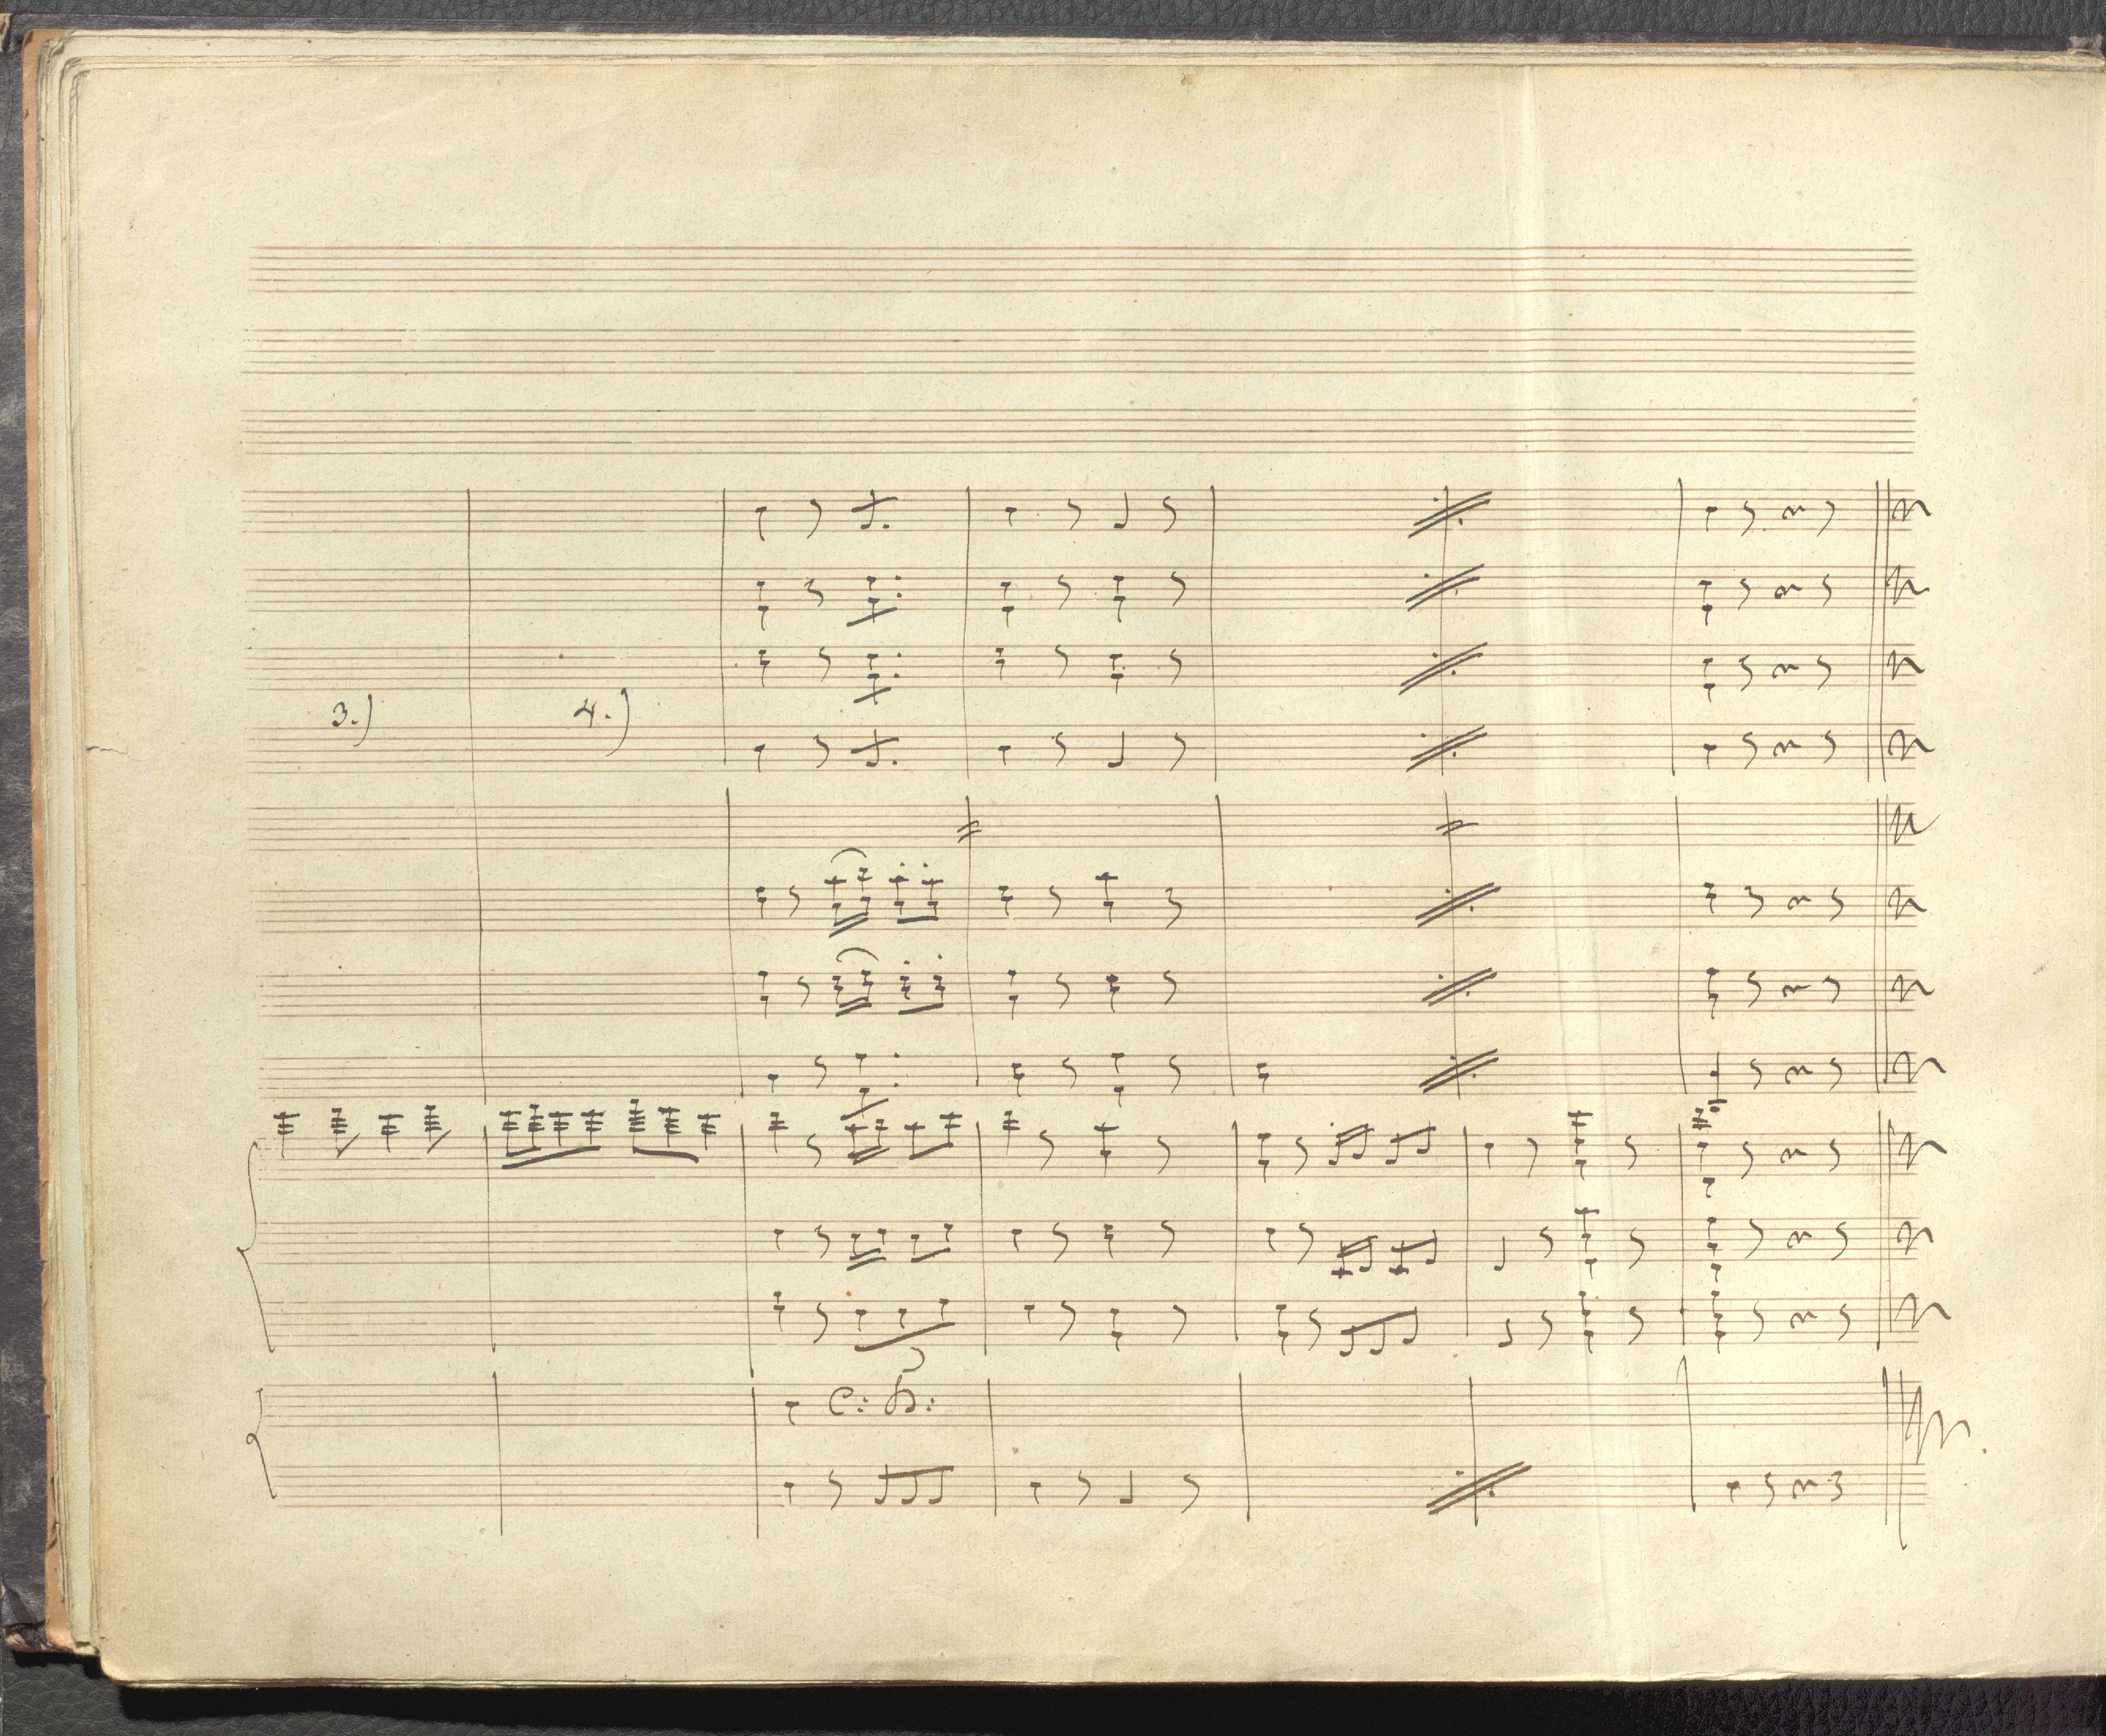 3.) 4.)
C: B: